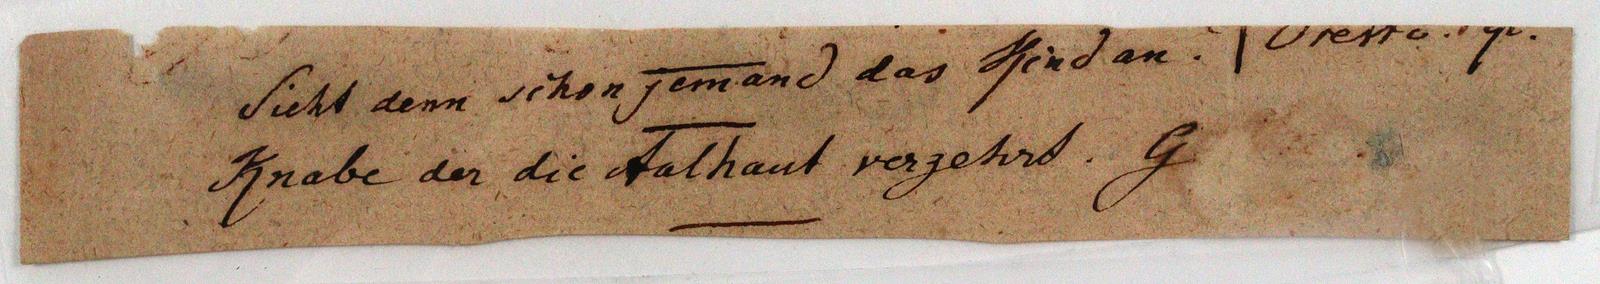 Sieht denn schon jemand das Kind an.
Knabe der die Aalhaut verzehrt. G